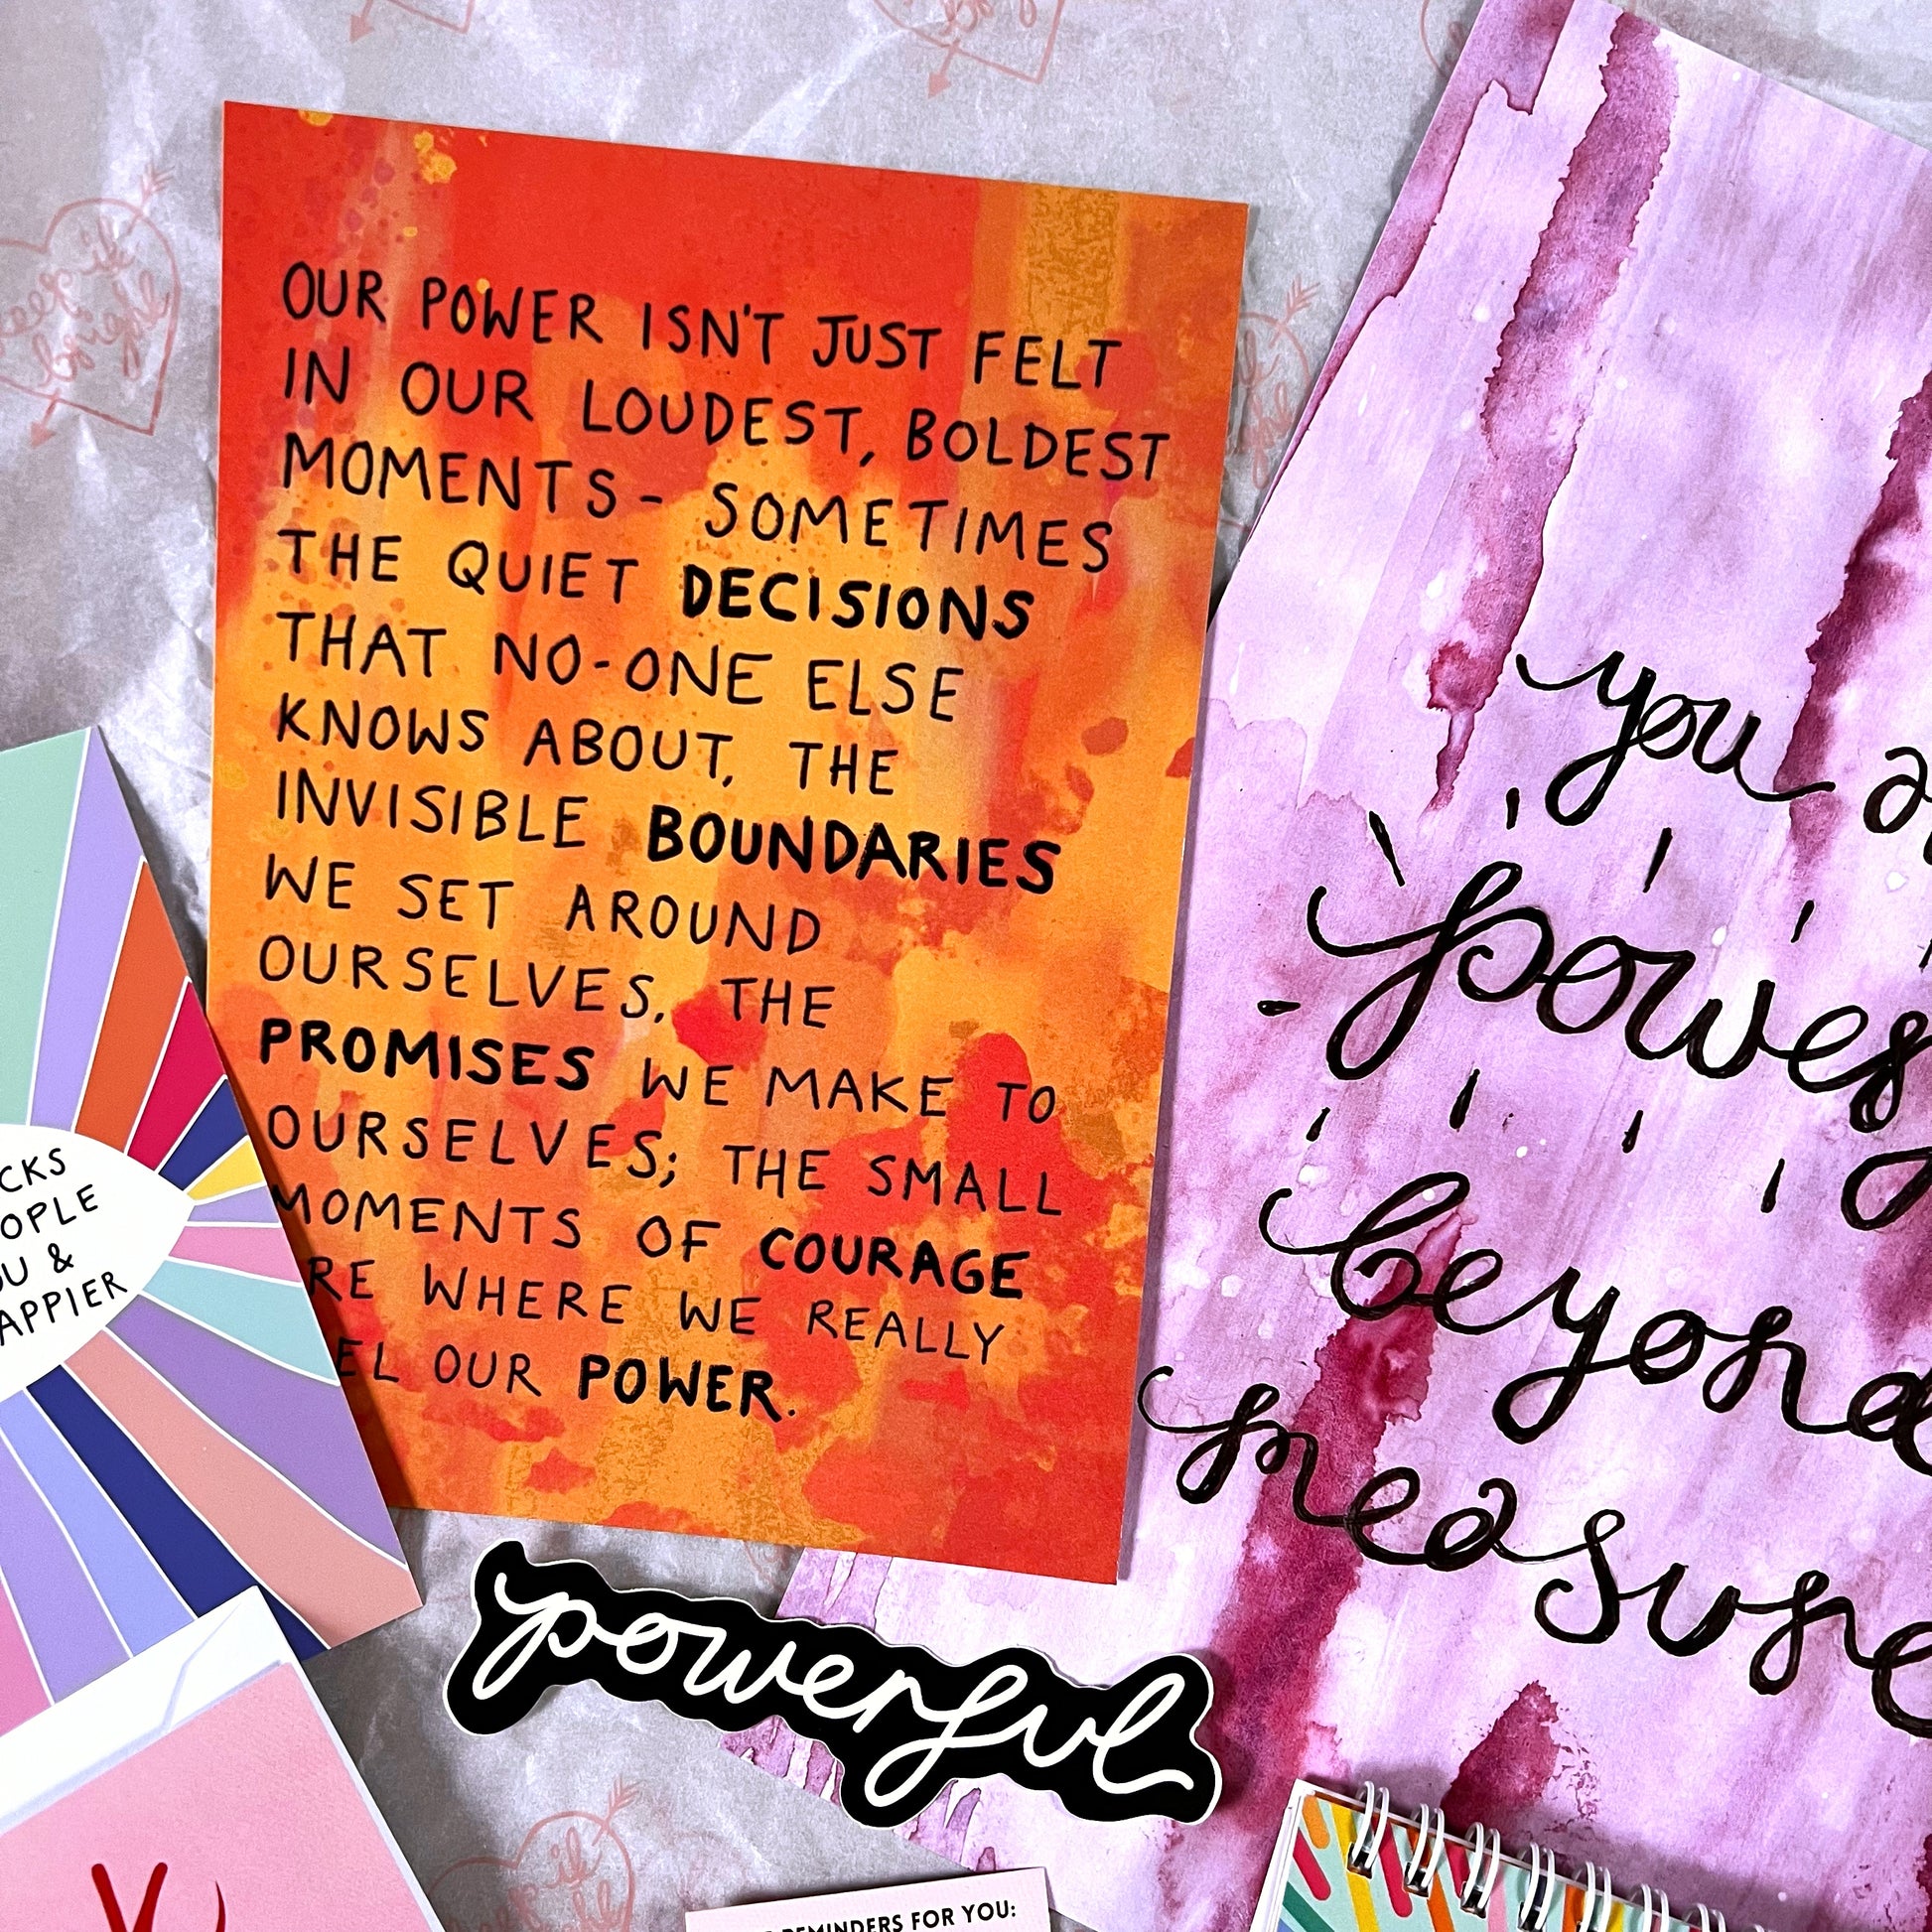 OUR POWER ISN'T JUST FELT
IN OUR LOUDEST, BOLDEST
MOMENTS - SOMETIMES
THE QUIET DECISIONS
THAT NO-ONE ELSE
KNOWS ABOUT, THE
INVISIBLE BOUNDARIES
WE SET AROUND
OURSELVES, THE
PROMISES WE MAKE TO
OURSELVES; THE SMALL
MOMENTS OF COURAGE
RE WHERE WE REALLY
EL OUR POWER.
you a
power
beyond
measure
powerful
CKS
OPLE
OU &
APPIER
REMINDERS FOR YOU: